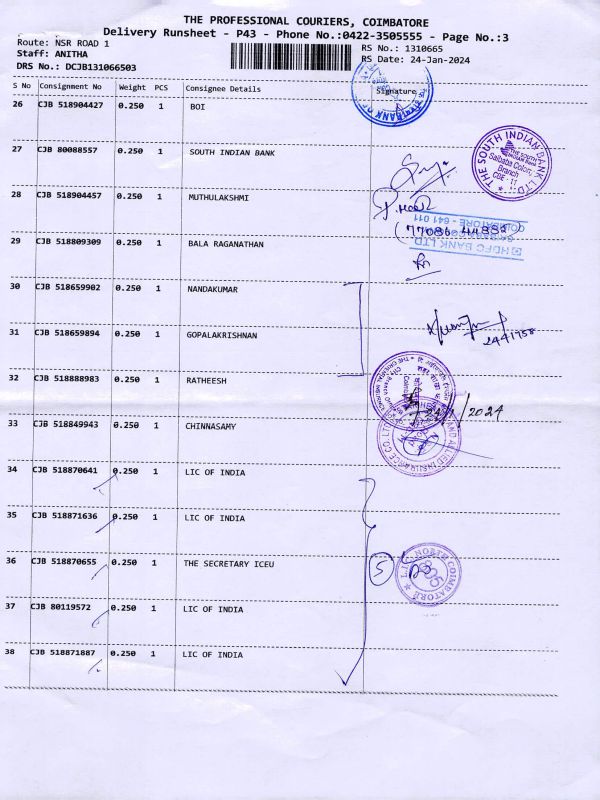 THE PROFESSIONAL COURIERS, COIMBATORE
Delivery Runsheet - P43 - Phone No.:0422-3505555 - Page No.:3
Route: NSR ROAD 1
RS No.: 1310665
Staff: ANITHA
RS Date: 24-Jan-2024
DRS No.: DCJB131066503
S No Consignment No Weight PCS Consignee Details Signature
26 CJB 518904427 0.250 1 BOI
BANK OF
27 CJB 80088557 0.250 1 SOUTH INDIAN BANK
THE SOUTH INDIAN BANK LTD
Saibaba Colony
Branch
28 CJB 518904457 0.250 1 MUTHULAKSHMI
HDFC BANK LTD
COIMBATORE - 641 011
29 CJB 518809309 0.250 1 BALA RAGANATHAN
30 CJB 518659902 0.250 1 NANDAKUMAR
31 CJB 518659894 0.250 1 GOPALAKRISHNAN
2441758
32 CJB 518888983 0.250 1 RATHEESH
33 CJB 518849943 0.250 1 CHINNASAMY
34 CJB 518870641 0.250 1 LIC OF INDIA
35 CJB 518871636 0.250 1 LIC OF INDIA
36 CJB 518870655 0.250 1 THE SECRETARY ICEU
5
LIC NORTH COIMBATORE
37 CJB 80119572 0.250 1 LIC OF INDIA
38 CJB 518871887 0.250 1 LIC OF INDIA